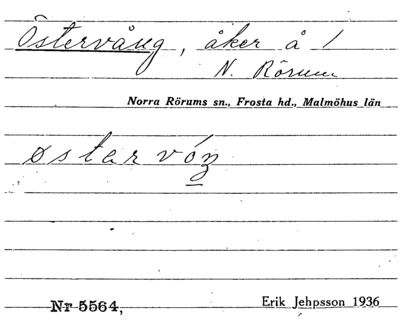 Östervång, åker å 1
N. Rörum
Norra Rörums sn., Frosta hd., Malmöhus län
østar vóŋ
Nr 5564, Erik Jehpsson 1936